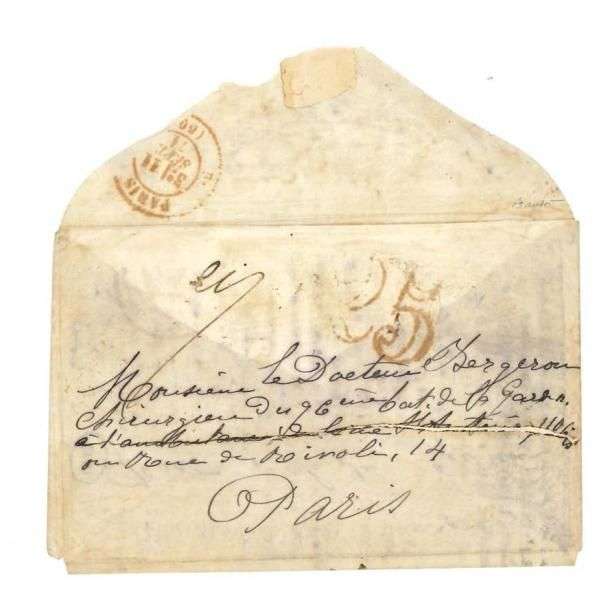 PARIS
(60)
3E
11
SEPT
71
25
Monsieur le Docteur Bergeron
chirurgien du 96 ème bat. de la Garde n.
à l'ambulance de
ou Rue de Rivoli, 14
Paris